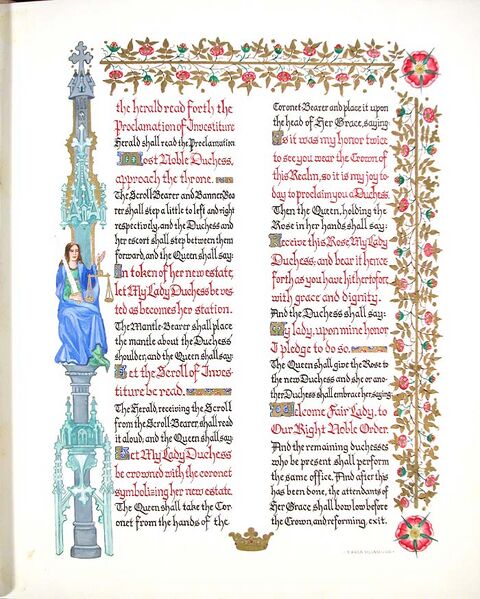 the herald read forth the
Proclamation of Investiture
Herald shall read the Proclamation
Most Noble Duchess,
approach the throne.
The Scroll Bearer and Banner Bea
rer shall step a little to left and right
respectively, and the Duchess and
her escort shall step between them
forward, and the Queen shall say:
In token of her new estate,
let My Lady Duchess be ves
ted as becomes her station.
The Mantle-Bearer shall place
the mantle about the Duchess'
shoulder, and the Queen shall say:
Let the Scroll of Inves-
titure be read.
The Herald, receiving the Scroll
from the Scroll Bearer, shall read
it aloud, and the Queen shall say:
Let My Lady Duchess
be crowned with the coronet
symbolizing her new estate.
The Queen shall take the Cor-
onet from the hands of the
Coronet-Bearer and place it upon
the head of Her Grace, saying:
As it was my honor twice
to see you wear the Crown of
this Realm, so it is my joy to-
day to proclaim you a Duchess.
Then the Queen, holding the
Rose in her hands shall say:
Receive this Rose, My Lady
Duchess, and bear it hence
forth as you have hithertofore
with grace and dignity.
And the Duchess shall say:
My lady, upon mine honor
I pledge to do so.
The Queen shall give the Rose to
the new Duchess and she or ano-
ther Duchess shall embrace her, saying:
Welcome Fair Lady, to
Our Right Noble Order.
And the remaining duchesses
who be present shall perform
the same office. And after this
has been done, the attendants of
Her Grace shall bow low before
the Crown, and reforming, exit.